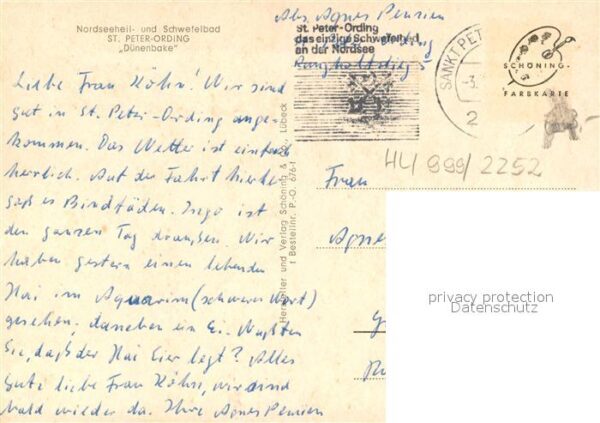 Nordseeheil- und Schwefelbad
ST. PETER-ORDING
„Dünenbake"
Abs. Agnes Pennien
St. Peter-Ording
das einzige Schwefelbad
an der Nordsee
SANKT PET
-3.
2
SCHÖNING-
FARBKARTE
HU 999/2252
Liebe Frau Köhn! Wir sind
gut in St. Peter-Ording ange-
kommen. Das Wetter ist einfach
herrlich. Auf der Fahrt hierher
goß es Bindfäden. Ingo ist
den ganzen Tag draußen. Wir
haben gestern einen lebenden
Hai im Aquarium (schweres Wort)
gesehen, daneben ein Ei. Wußten
Sie, daß der Hai Eier legt? Alles
Gute liebe Frau Köhn, wir sind
bald wieder da. Ihre Agnes Pennien
Hersteller und Verlag Schöning & Lübeck
Bestellnr. P.O. 676-1
Frau
Agnes
privacy protection
Datenschutz